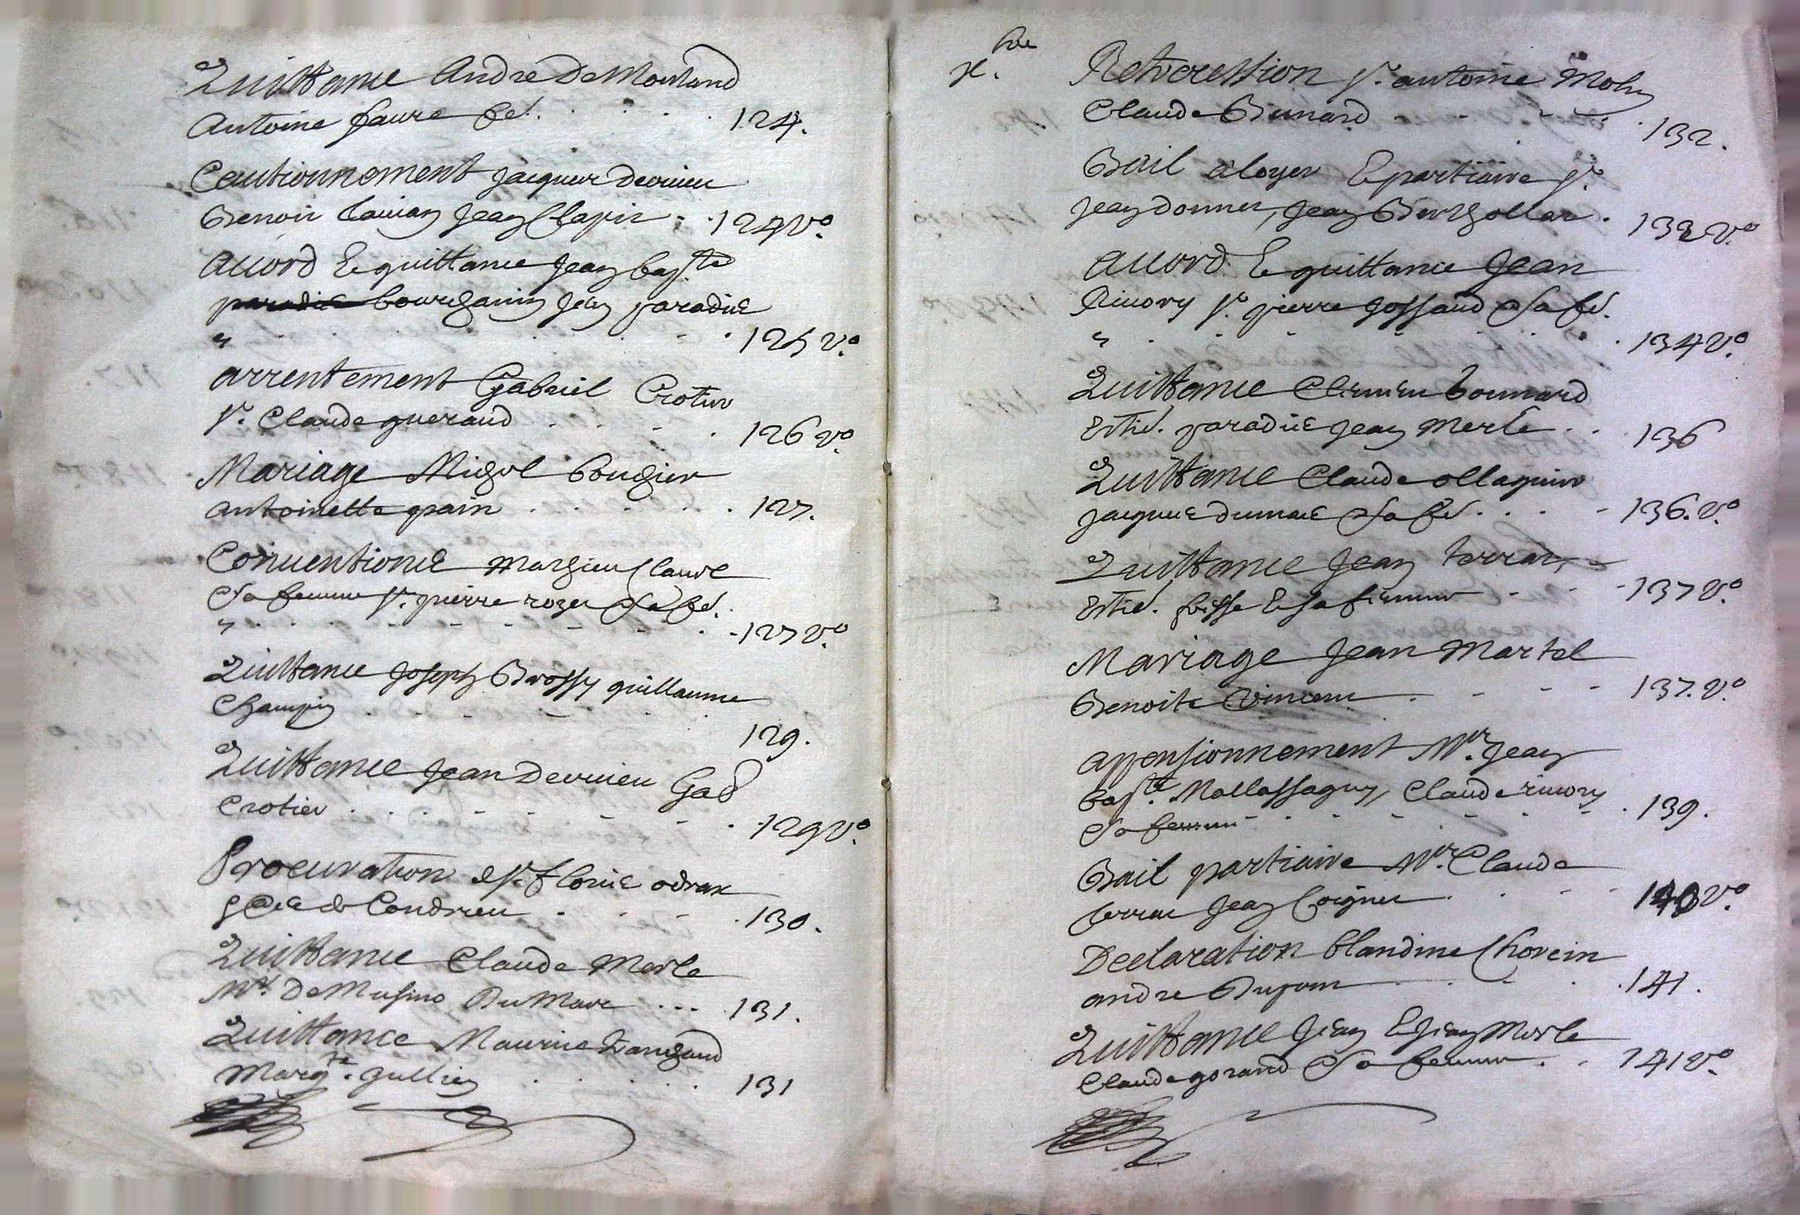 Quittance André De Montand
Antoine faure fe^d. 124.
Cautionnement jacques Dervieu
Benoit Jean Chapis 124 v.°
accord Et quittance Jean bap^te
paradis bourchanin Jean paradis
" 125 v.°
arrentement Gabriel Crotier
s^r. Claude gueraud 126 v°
Mariage Michel bougier
antoinette pain 127.
Conventions Mathieu Claude
& sa femme s^r. pierre rozer & sa fe^d.
" 127 v.°
Quittance joseph Brossy guillaume
Champin 129.
Quittance jean Dervieu Gab
Crotier 129 v.°
Procuration odrax
de Condrieu 130.
Quittance Claude Merle
M^r. De Musino Du Marc 131.
Quittance Maurice
Marg^te. gullien 131
x^bre
Retrocession s^r antoine Molin
Claude Bunard 132.
Bail a loyer Et partiaire s^r.
jean donnet, jean Berthollat 132 v.°
accord Et quittance Jean
Rivory s^r. pierre jossaud & sa fe^d.
" 134 v.°
Quittance Clemeu bonnard
Esti^e. paradis jean Merle 136
Quittance Claude ollagnier
jacques dumas & sa fe^d. 136. v.°
Quittance jean terrat
Esti^e. Et sa femme 137 v.°
Mariage Jean Martel
Benoite Vincent 137. v.°
appensionnement M^re. jean
bap^te. Mallassagny, Claude rivory
& sa femme 139.
Bail partiaire M^re. Claude
terrat jean Coignet 140 v.°
Declaration blandine Chorein
andré Dupont 141.
Quittance jean Et jean Merle
Claude gorand & sa femme 141 v.°